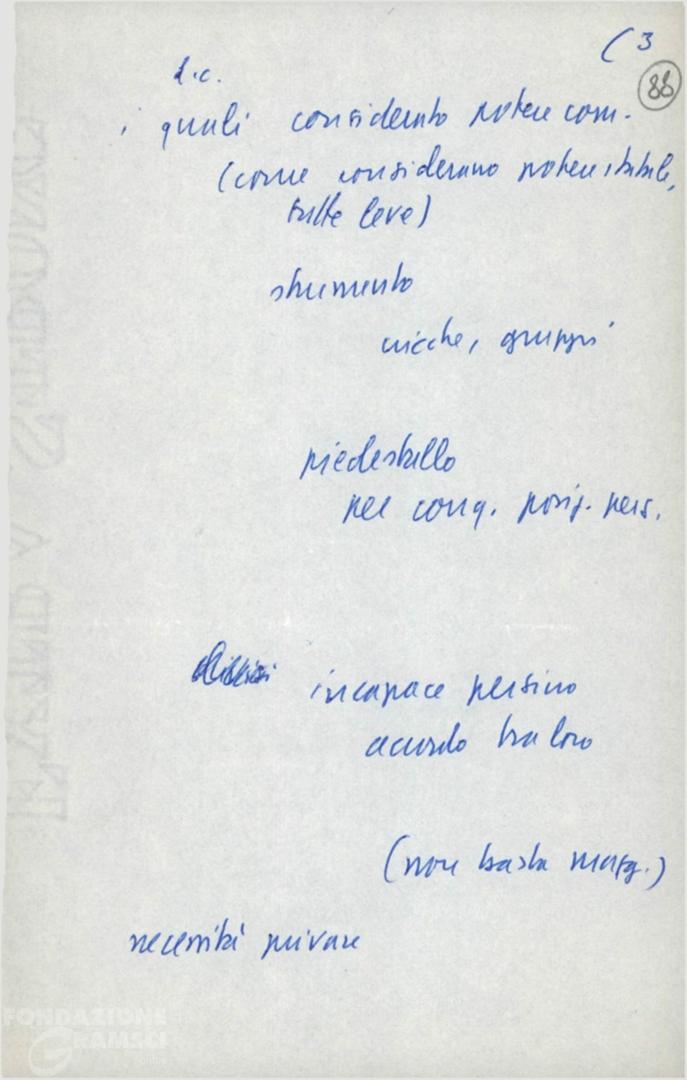 (3
88
d.c.
i quali considerato potere com.
(come considerano potere statale,
tutte leve)
strumento
cricche, gruppi
piedestallo
per conq. posiz. pers.
divisi incapace persino
accordo tra loro
(non basta marg.)
necessità privare
FONDAZIONE
GRAMSCI